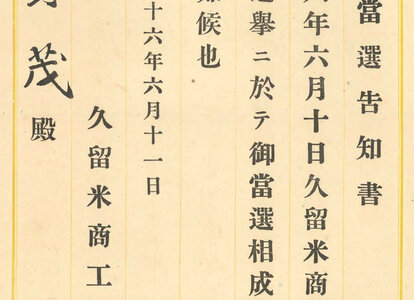 當選告知書
年六月十日久留米商
擧ニ於テ御當選相成
候也
十六年六月十一日
久留米商工
茂殿